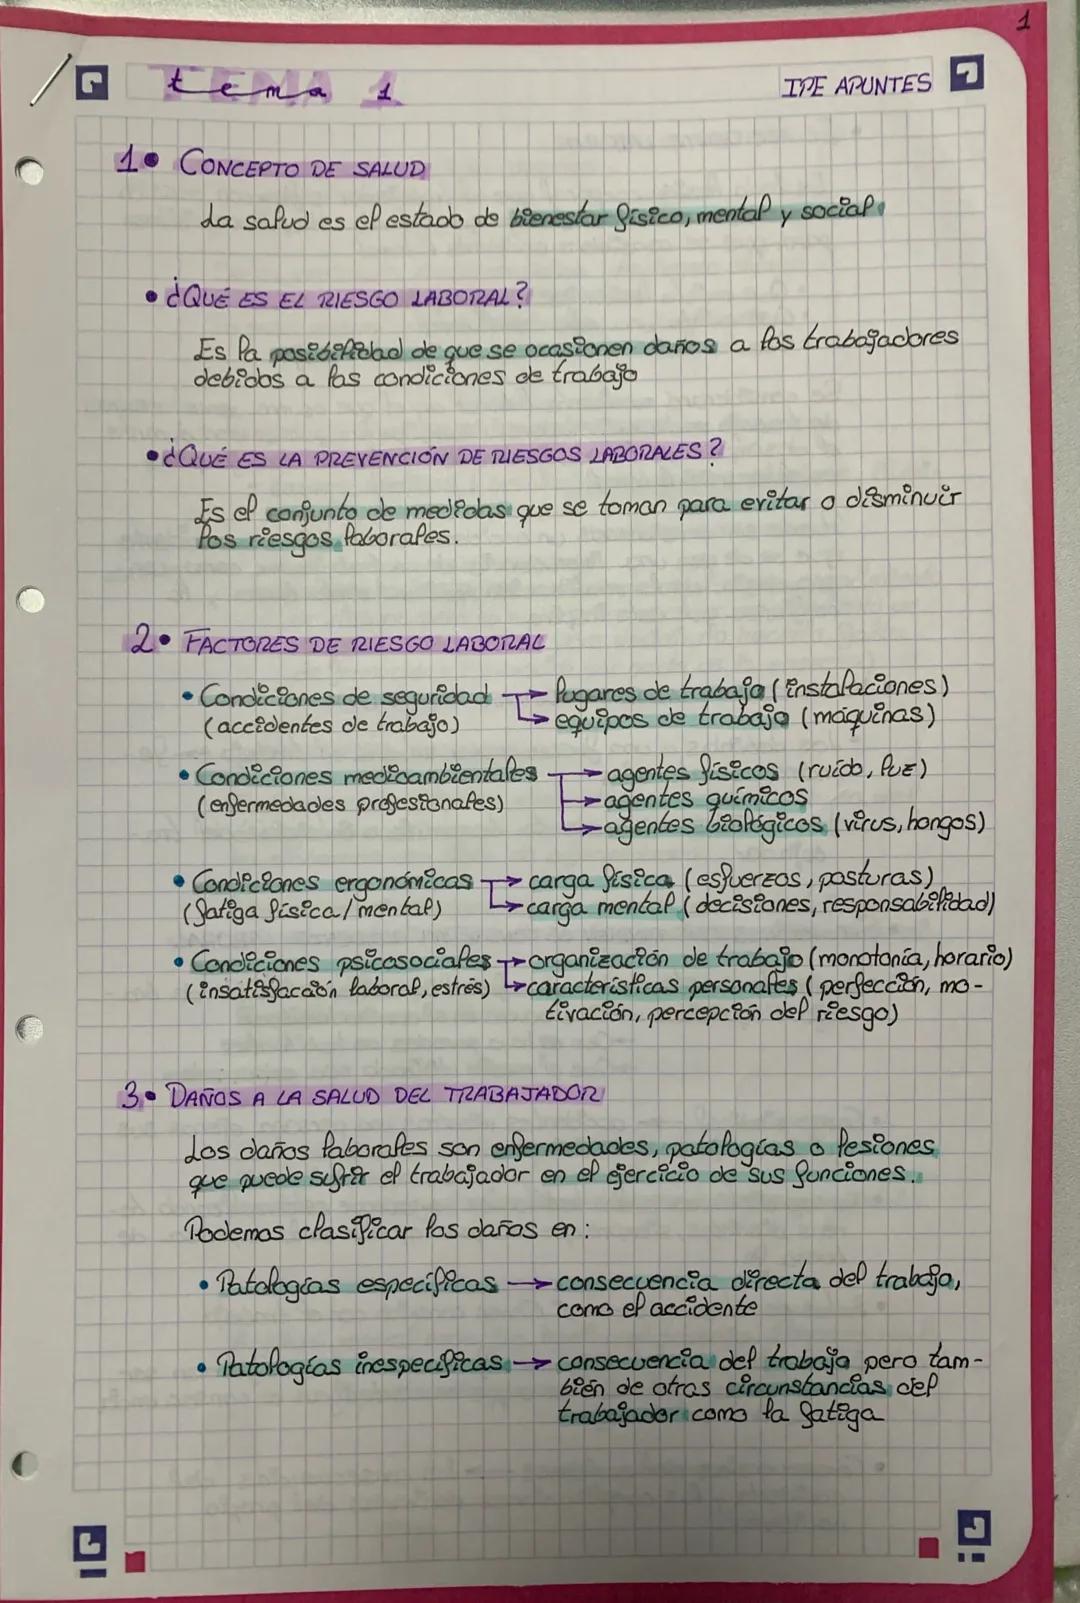 1
TEMA 1
tema 1
IPE APUNTES
1• CONCEPTO DE SALUD
La salud es el estado de bienestar físico, mental y social.
• ¿QUÉ ES EL RIESGO LABORAL?
Es la posibilidad de que se ocasionen daños a los trabajadores
debidos a las condiciones de trabajo
• ¿QUÉ ES LA PREVENCIÓN DE RIESGOS LABORALES?
Es el conjunto de medidas que se toman para evitar o disminuir
los riesgos laborales.
2• FACTORES DE RIESGO LABORAL
• Condiciones de seguridad → lugares de trabajo (instalaciones)
(accidentes de trabajo) → equipos de trabajo (máquinas)
• Condiciones medioambientales → agentes físicos (ruido, luz)
(enfermedades profesionales) → agentes químicos
→ agentes biológicos (virus, hongos)
• Condiciones ergonómicas → carga física (esfuerzos, posturas)
(fatiga física/mental) → carga mental (decisiones, responsabilidad)
• Condiciones psicosociales → organización de trabajo (monotonía, horario)
(insatisfacción laboral, estrés) → características personales (perfección, mo-
tivación, percepción del riesgo)
3• DAÑOS A LA SALUD DEL TRABAJADOR
Los daños laborales son enfermedades, patologías o lesiones
que puede sufrir el trabajador en el ejercicio de sus funciones.
Podemos clasificar los daños en:
• Patologías específicas → consecuencia directa del trabajo,
como el accidente
• Patologías inespecíficas → consecuencia del trabajo pero tam-
bién de otras circunstancias del
trabajador como la fatiga